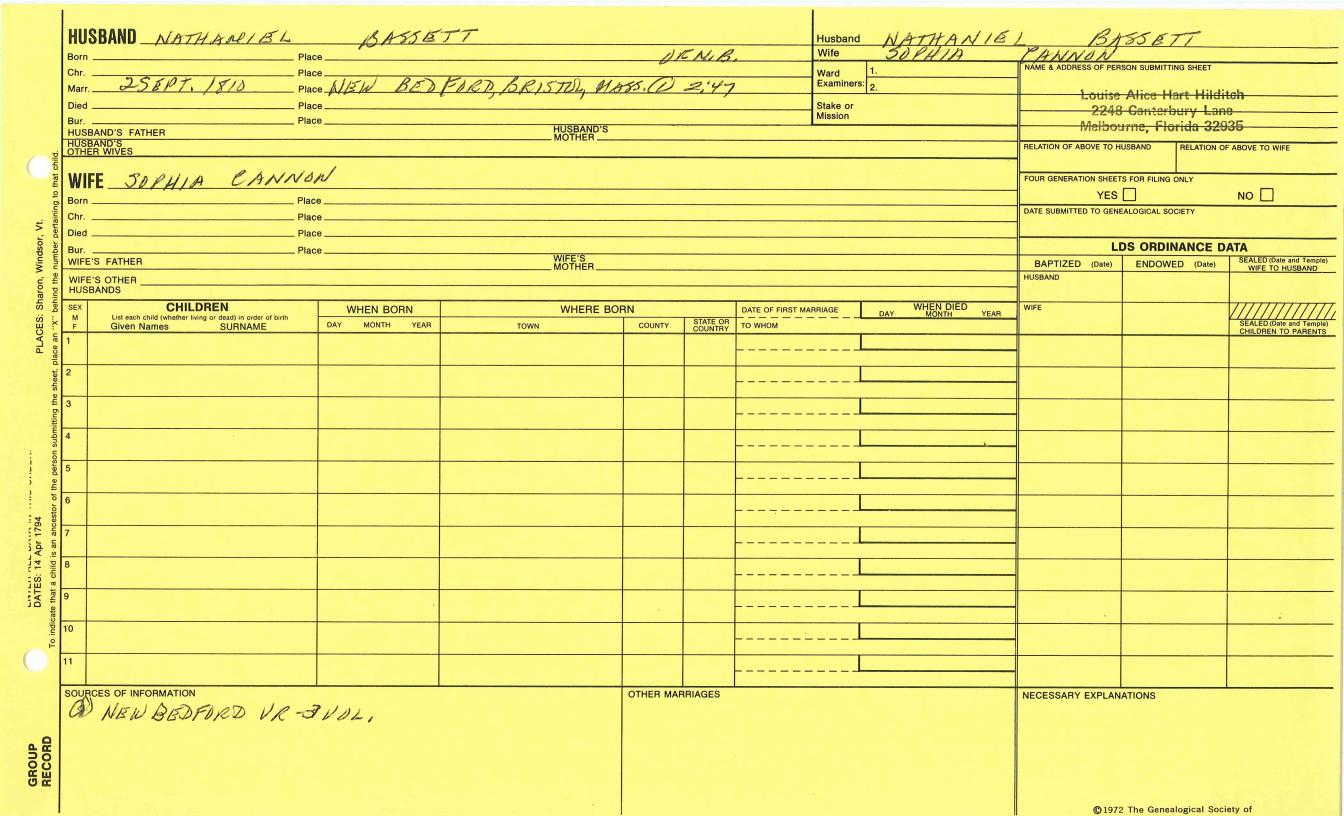 HUSBAND NATHANIEL BASSETT
Born Place OF N.B.
Chr. Place
Marr. 2 SEPT. 1810 Place NEW BEDFORD, BRISTOL, MASS. ① 2:47
Died Place
Bur. Place
HUSBAND'S FATHER HUSBAND'S MOTHER
HUSBAND'S OTHER WIVES
WIFE SOPHIA CANNON
Born Place
Chr. Place
Died Place
Bur. Place
WIFE'S FATHER WIFE'S MOTHER
WIFE'S OTHER HUSBANDS
Husband NATHANIEL BASSETT
Wife SOPHIA CANNON
Ward Examiners: 1.
2.
Stake or Mission
NAME & ADDRESS OF PERSON SUBMITTING SHEET
Louise Alice Hart Hilditch
2248 Canterbury Lane
Melbourne, Florida 32935
RELATION OF ABOVE TO HUSBAND RELATION OF ABOVE TO WIFE
FOUR GENERATION SHEETS FOR FILING ONLY
YES NO
DATE SUBMITTED TO GENEALOGICAL SOCIETY
LDS ORDINANCE DATA
BAPTIZED (Date) ENDOWED (Date) SEALED (Date and Temple) WIFE TO HUSBAND
HUSBAND
WIFE
SEALED (Date and Temple) CHILDREN TO PARENTS
SEX M F
CHILDREN
List each child (whether living or dead) in order of birth
Given Names SURNAME
WHEN BORN
DAY MONTH YEAR
WHERE BORN
TOWN COUNTY STATE OR COUNTRY
DATE OF FIRST MARRIAGE
TO WHOM
WHEN DIED
DAY MONTH YEAR
1
2
3
4
5
6
7
8
9
10
11
SOURCES OF INFORMATION
① NEW BEDFORD VR - 3 VOL.
OTHER MARRIAGES
NECESSARY EXPLANATIONS
©1972 The Genealogical Society of
PLACES: Sharon, Windsor, Vt.
DATES: 14 Apr 1794
To indicate that a child is an ancestor of the person submitting the sheet, place an "X" behind the number pertaining to that child.
GROUP RECORD